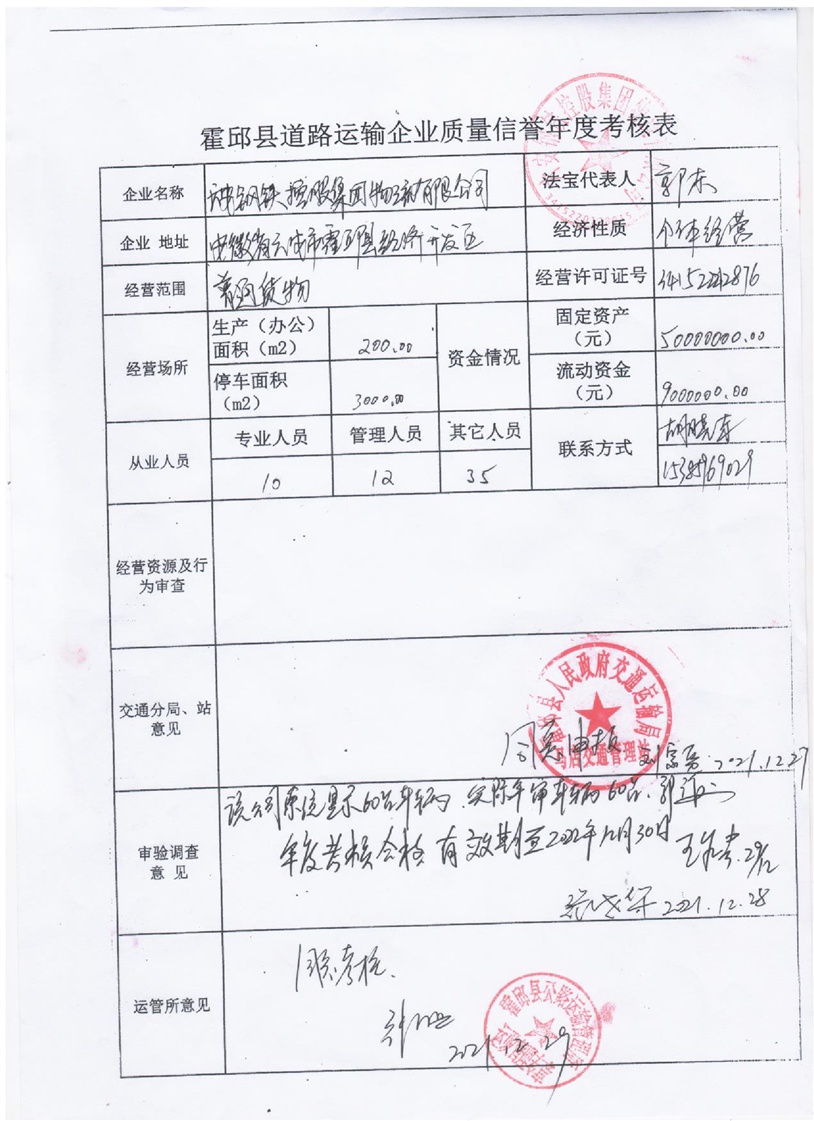 霍邱县道路运输企业质量信誉年度考核表
企业名称 钢铁控股集团物流有限公司 法宝代表人 郭东
企业 地址 安徽省六安市霍邱县经济开发区 经济性质 个体经营
经营范围 普通货物 经营许可证号
经营场所 生产（办公）面积（m2） 200.00 资金情况 固定资产（元） 50000000.00
停车面积（m2） 3000.00 流动资金（元） 9000000.00
从业人员 专业人员 管理人员 其它人员 联系方式 胡晓东
10 12 35 15385969029
经营资源及行为审查
交通分局、站意见
霍邱县人民政府交通运输局
马店交通管理站
2021.12.27
审验调查意 见
该公司系统显示60台车辆，实际年审车辆60台，
年度考核合格 有效期至2022年12月30日
2021.12.28
运管所意见
同意考核.
2021.12.29
霍邱县公路运输管理所